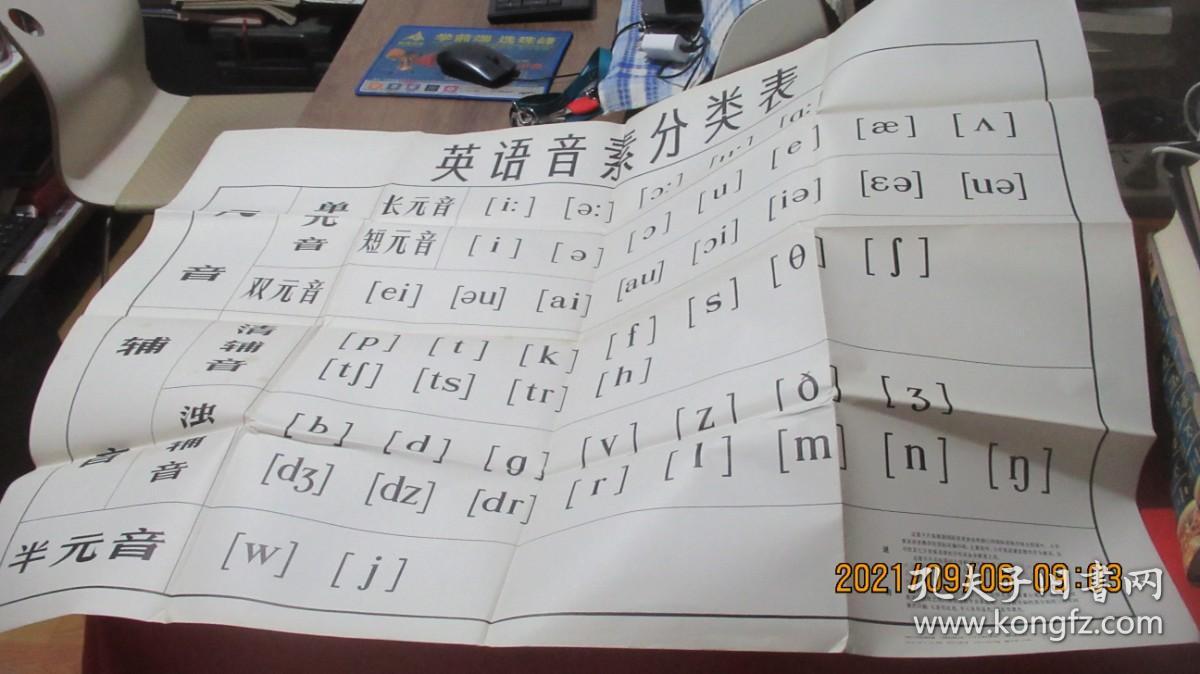 英语音素分类表
元音 单元音 长元音 [i:] [ə:] [ɔ:] [u:] [ɑ:]
短元音 [i] [ə] [ɔ] [u] [e] [æ] [ʌ]
双元音 [ei] [əu] [ai] [au] [ɔi] [iə] [ɛə] [uə]
辅音 清辅音 [p] [t] [k] [f] [s] [θ] [ʃ]
[tʃ] [ts] [tr] [h]
浊辅音 [b] [d] [g] [v] [z] [ð] [ʒ]
[dʒ] [dz] [dr] [r] [l] [m] [n] [ŋ]
半元音 [w] [j]
2021/09/06 09:03
孔夫子旧书网
www.kongfz.com